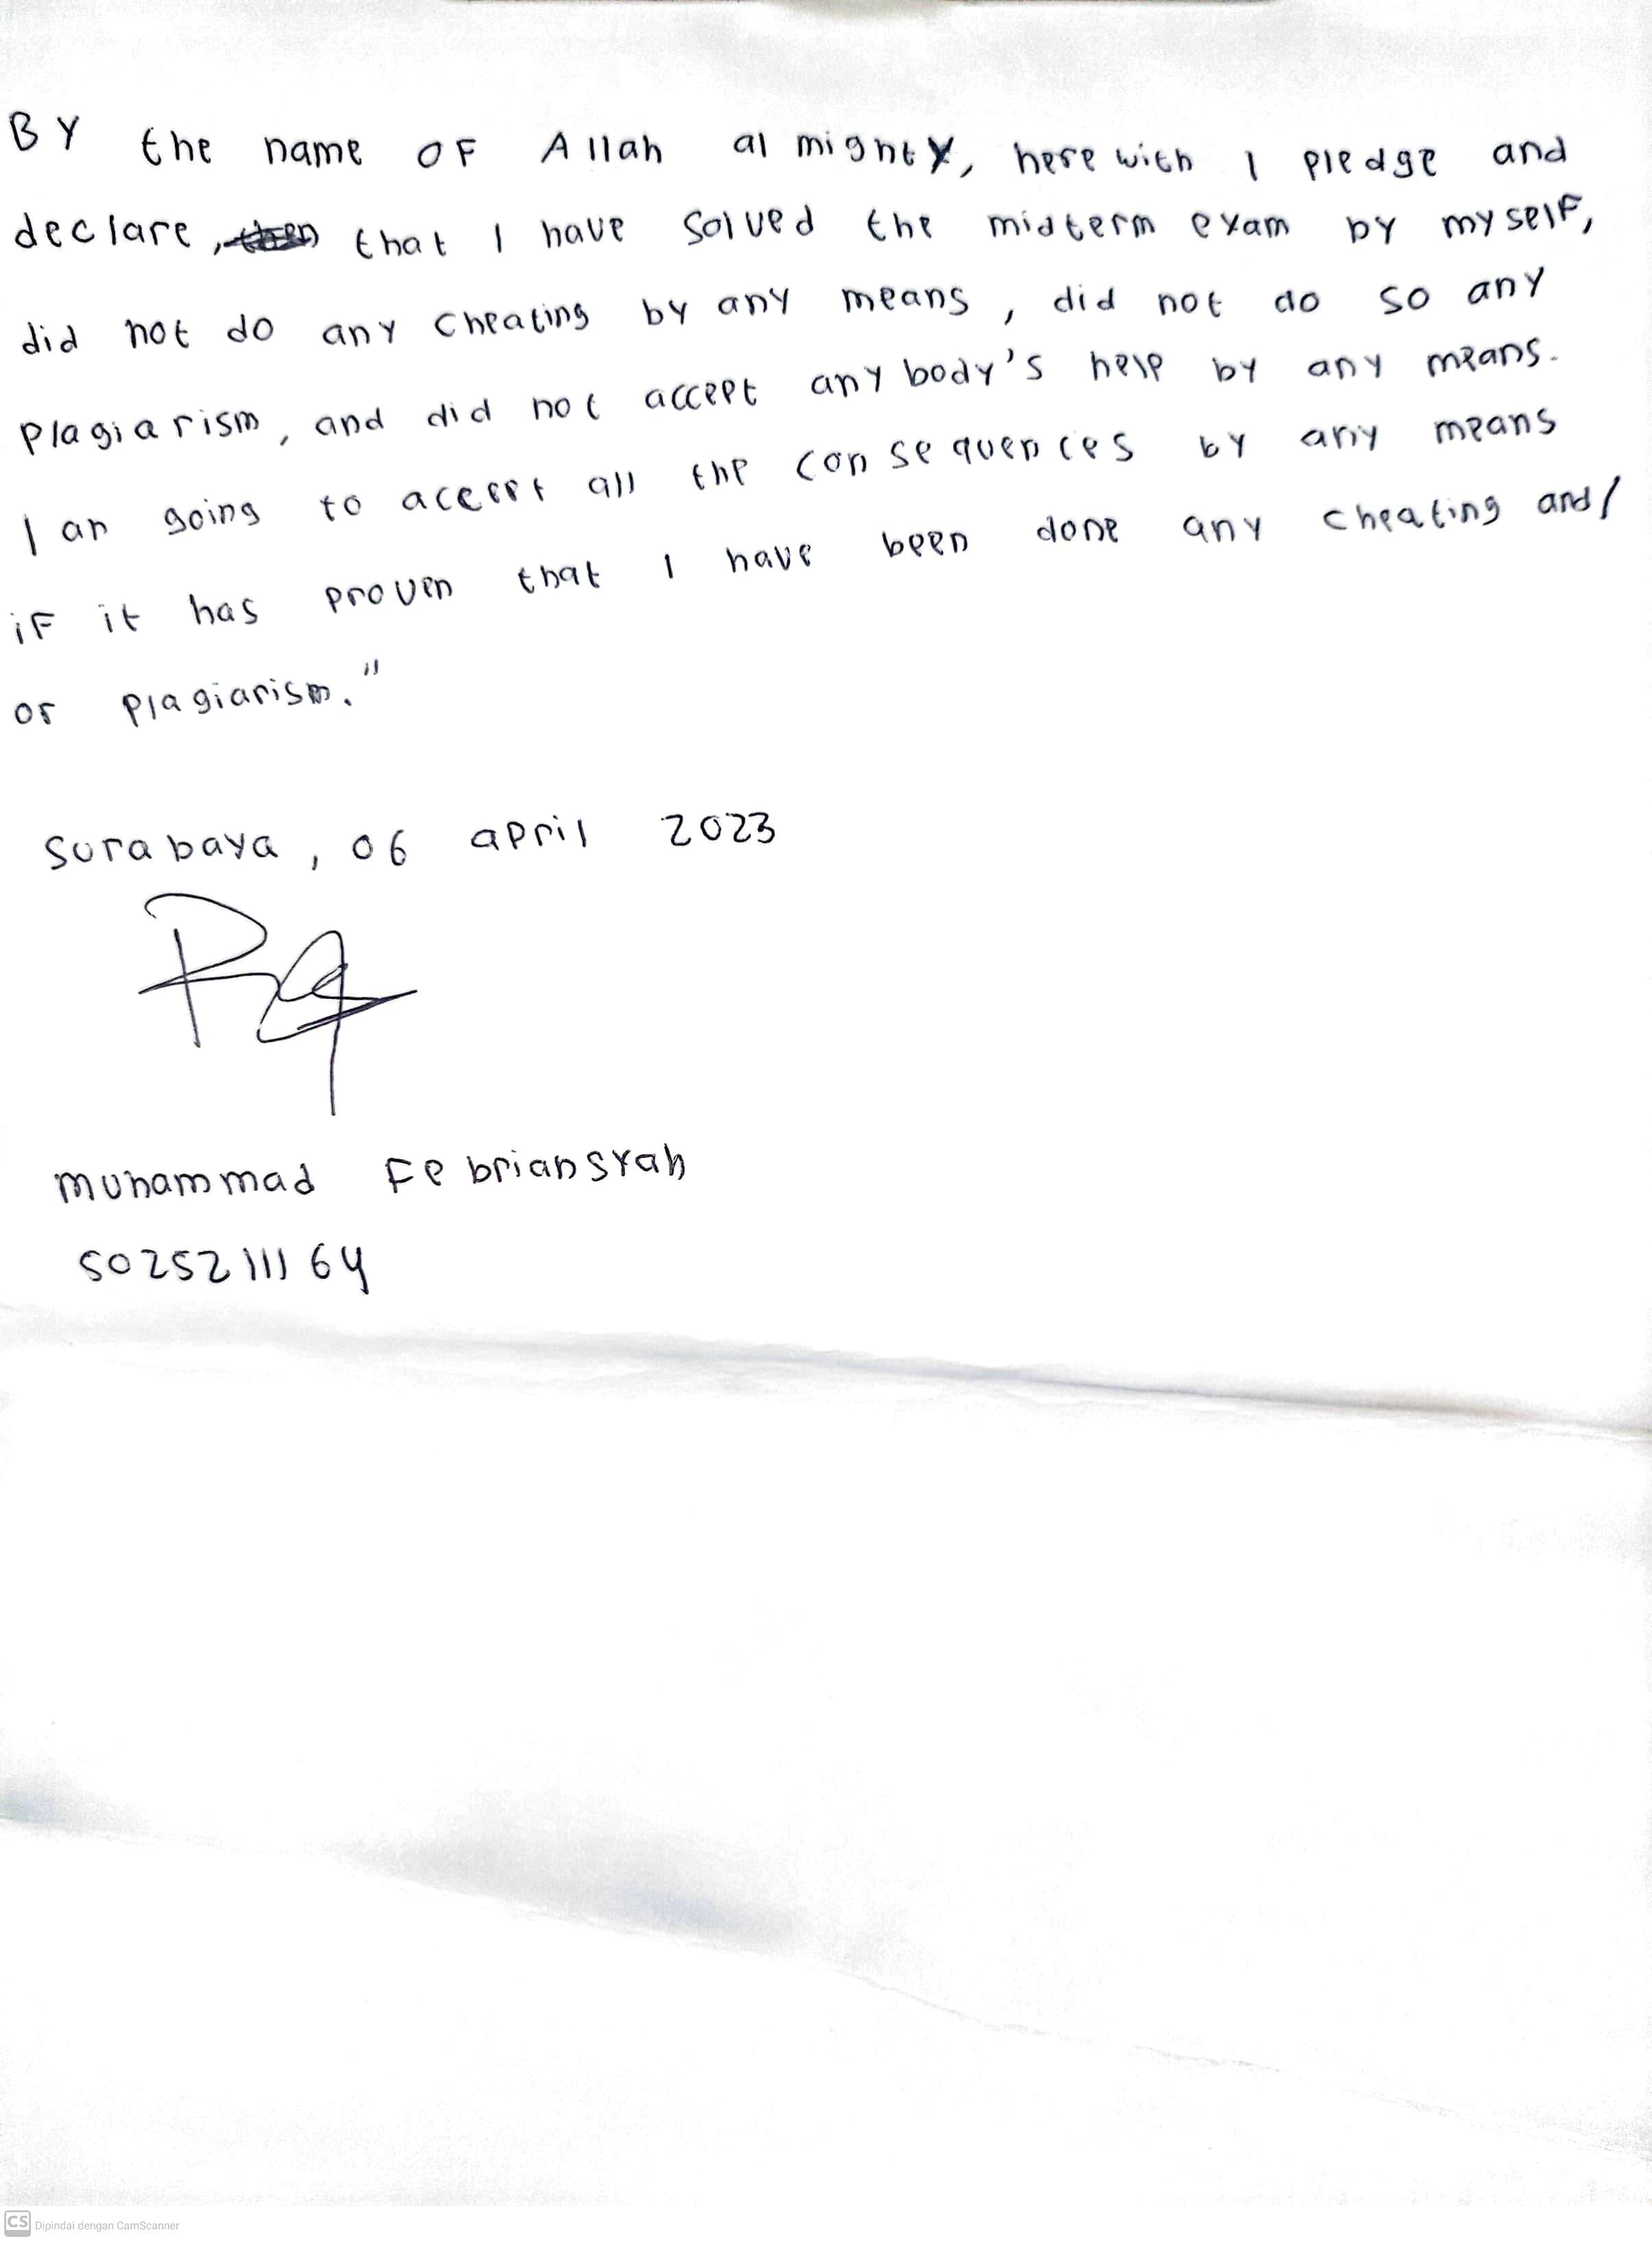 BY the name OF Allah almighty, herewith I pledge and
declare, that I have solved the midterm exam by myself,
did not do any cheating by any means, did not do so any
plagiarism, and did not accept anybody's help by any means.
I am going to accept all the consequences by any means
iF it has proven that I have been done any cheating and/
or plagiarism."
Surabaya, 06 april 2023
Muhammad Febriansyah
5025211164
CS Dipindai dengan CamScanner